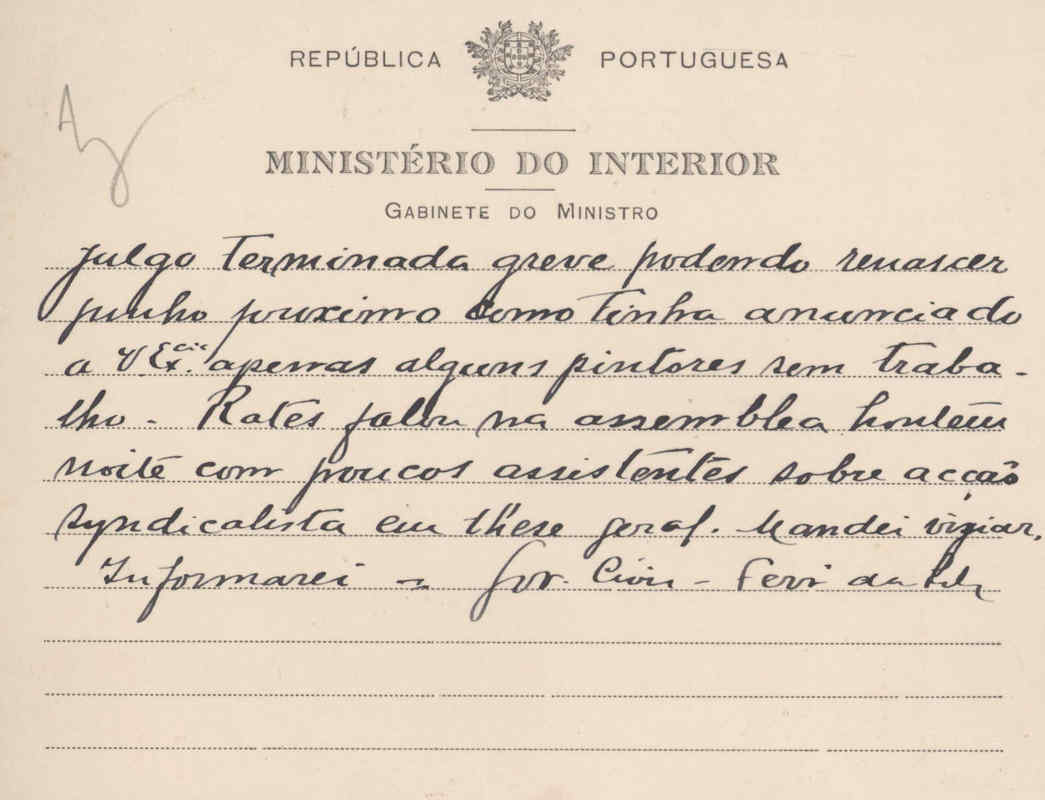 REPÚBLICA PORTUGUESA
MINISTÉRIO DO INTERIOR
GABINETE DO MINISTRO
Julgo terminada greve podendo renascer
junho proximo como tinha anunciado
a V. Ex.cia apenas alguns pintores sem traba-
lho - Rates falou na assemblea hontem
noite com poucos assistentes sobre acção
syndicalista em these geral. Mandei vigiar.
Informarei - Gov. Civil - da